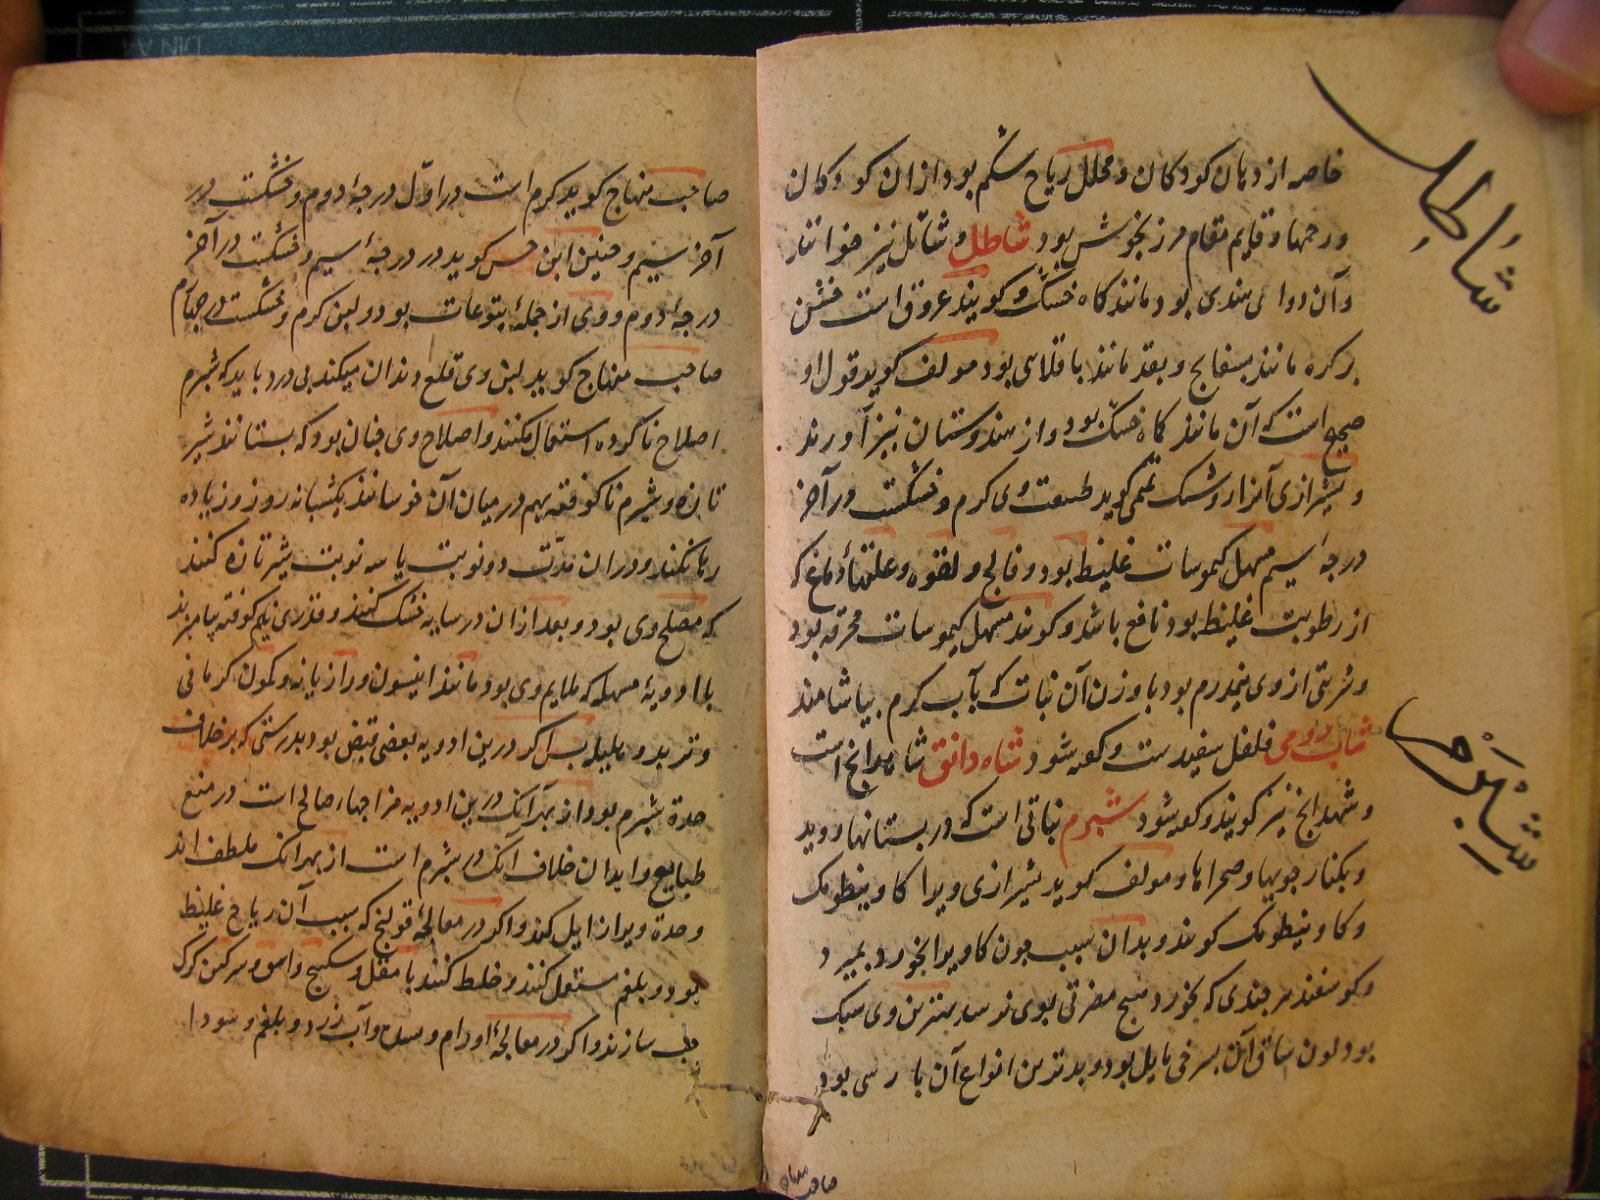 خاصه از دهان کودکان و محلل ریاح شکم بود از ان کودکان
ورحمها و قایم مقام مرزنجوش بود شاطل و شاتل نیز خوانند
شاطل
وآن دوا ئی هندی بود مانند کماه خشک و کویند عروق است خشن
بر کره مانند بسفایج و بقدر مانند باقلائی بود مولف کوید قول او
صحیح است که آن مانند کماه خشک بود و از هندوستان نیز آورند
و بشیرازی آنرا روشنک کوید طبیعت وی کرم و خشکست در آخر
درجهٔ سیم مسهل کیموسات غلیظ بود و فالج و لقوه و علتهاء دماغ که
از رطوبت غلیظ بود نافع باشد و کویند مسهل کیموسات محرقه بود
و شربتی از وی نیمدرم بود با وزن آن نبات که بآب کرم بیاشامند
شاب رومی فلفل سفیدست و کفته شود شاه دانق شاهدانج است
و شهدانج نیز کویند و کفته شود شبرم نباتی است که در بستانها روید
شبرم
و بکنار جویها و صحراها و مولف کوید بشیرازی ویرا کاوینطومک
و کاوینطومک کویند و بدان سبب چون کاو ویرا بخورد بمیرد
و کوسفند هر چندی که بخورد هیچ مضرتی بوی نرسد بهترین وی سبک
بود لون ساق آن بسرخی مایل بود و بدترین انواع آن پارسی بود
صاحب منهاج
صاحب منهاج کوید کرم است در اوّل درجهٔ دوم و خشکست در
آخر سیم و حنین ابن حسن کوید در درجهٔ سیم و خشکست در آخر
درجهٔ دوم و وی از جملهٔ یتوعات بود و لبن کرم و خشکست در چهارم
صاحب منهاج کوید لبن وی قلع دندان میکند بی درد باید که شبرم
اصلاح ناکرده استعمال نکنند و اصلاح وی چنان بود که بستانند شیر
تازه و شبرم ناکوفته بهم در میان آن خوسانند یکشبانه روز و زیاده
رها نکنند و در ان مدّت دو نوبت یا سه نوبت شیر تازه کنند
که مصلح وی بود و بعد از ان در سایه خشک کنند و قدری نیم کوفته بیامیزند
با ادویهٔ مسهله که ملایم وی بود مانند انیسون و رازیانه و کمون کرمانی
و تربد و هلیله بس اکر در ین ادویه بعضی قبض بود بدرستی که بر خلاف
حدة شبرم بود از بهر آنک در ین ادویه مزاجهاء صالح است در منع
طبایع و ابدان خلاف انک در شبرم است از بهر انک ملطف اند
وحدة ویرا زایل کند و اکر در معالجهٔ قولنج که سبب آن ریاح غلیظ
بود و بلغم مستعمل کنند و خلط کنند با مقل و سکبینج و اشق و سرکین کرک
حب سازند و اکر در معالجهٔ اورام و سدد وآب زرد و بلغم و سودا